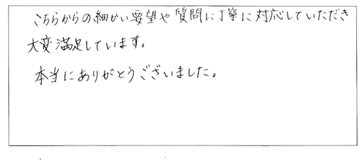 こちらからの細かい要望や質問に丁寧に対応していただき
大変満足しています。
本当にありがとうございました。